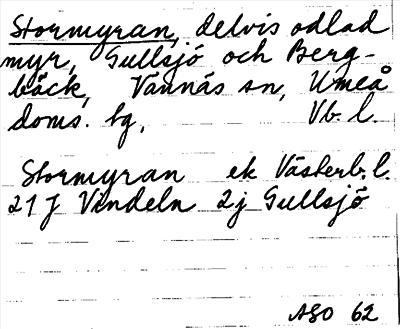 Stormyran, delvis odlad
myr, Gullsjö och Berg-
bäck, Vännäs sn, Umeå
doms. lg, Vb. l.
Stormyran ek Västerb. l.
21 J Vindeln 2j Gullsjö
ASO 62